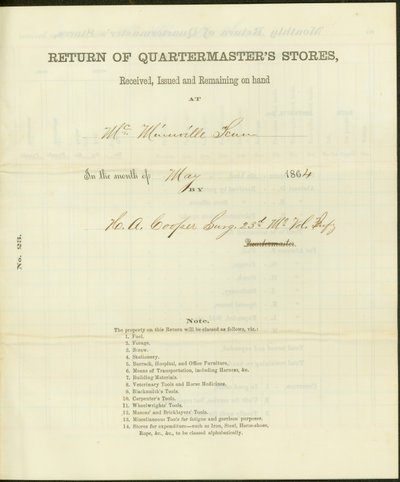 RETURN OF QUARTERMASTER'S STORES,
Received, Issued and Remaining on hand
AT
Mc Minnville Tenn
In the month of May 1864
BY
H. A. Cooper Surg. 23d Mo. Vol. Infy
Quartermaster.
No. 23.
Note.
The property on this Return will be classed as follows, viz.:
1. Fuel.
2. Forage.
3. Straw.
4. Stationery.
5. Barrack, Hospital, and Office Furniture.
6. Means of Transportation, including Harness, &c.
7. Building Materials.
8. Veterinary Tools and Horse Medicines.
9. Blacksmith's Tools.
10. Carpenter's Tools.
11. Wheelwrights' Tools.
12. Masons' and Bricklayers' Tools.
13. Miscellaneous Tools for fatigue and garrison purposes.
14. Stores for expenditure—such as Iron, Steel, Horse-shoes,
Rope, &c., &c., to be classed alphabetically.